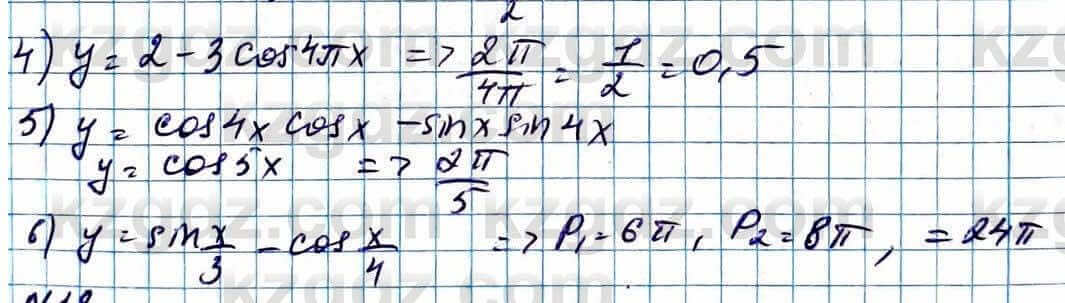 2
4) y = 2 - 3 cos 4πx => 2π/4π = 1/2 = 0,5
5) y = cos 4x cos x - sin x sin 4x
y = cos 5x => 2π/5
6) y = sin x/3 - cos x/4 => P₁ = 6π, P₂ = 8π, = 24π